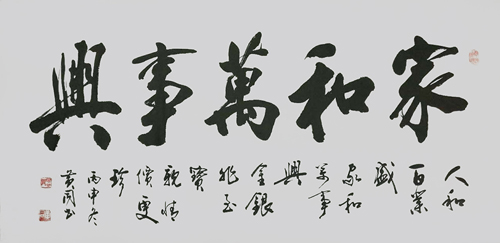 家和萬事興
人和
百業
盛
家和
萬事
興
金銀
非至
寶
親情
價更
珍
丙申冬